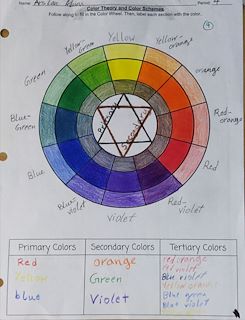 Name:
Period: 4
Color Theory and Color Schemes
Follow along to fill in the Color Wheel. Then, label each section with the color.
4
Yellow
Yellow-Green
Yellow-orange
Green
orange
Blue-Green
Red
Blue
Red-Violet
Blue-violet
Violet
Primary
Secondary
Primary Colors Secondary Colors Tertiary Colors
Red orange red orange
Yellow Green red violet
blue Violet Blue violet
Yellow orange
Blue green
Blue violet